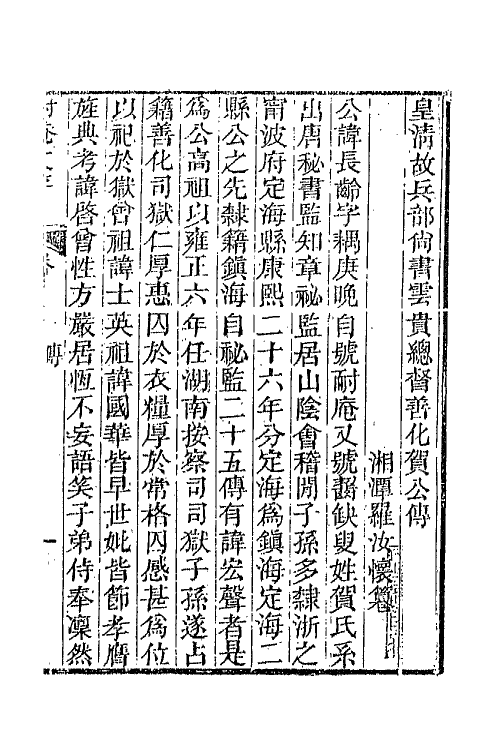 皇清故兵部尚書雲貴總督善化賀公傳
湘潭羅汝懷篹
公諱長齡字耦庚晚自號耐庵又號齧缺叟姓賀氏系
出唐秘書監知章祕監居山陰會稽閒子孫多隸浙之
甯波府定海縣康熙二十六年分定海爲鎮海定海二
縣公之先隸籍鎮海自祕監二十五傳有諱宏聲者是
爲公高祖以雍正六年任湖南按察司司獄子孫遂占
籍善化司獄仁厚惠囚於衣糧厚於常格囚感甚爲位
以祀於獄曾祖諱士英祖諱國華皆早世妣皆節孝膺
旌典考諱啓曾性方嚴居恆不妄語笑子弟侍奉凜然
傳
一